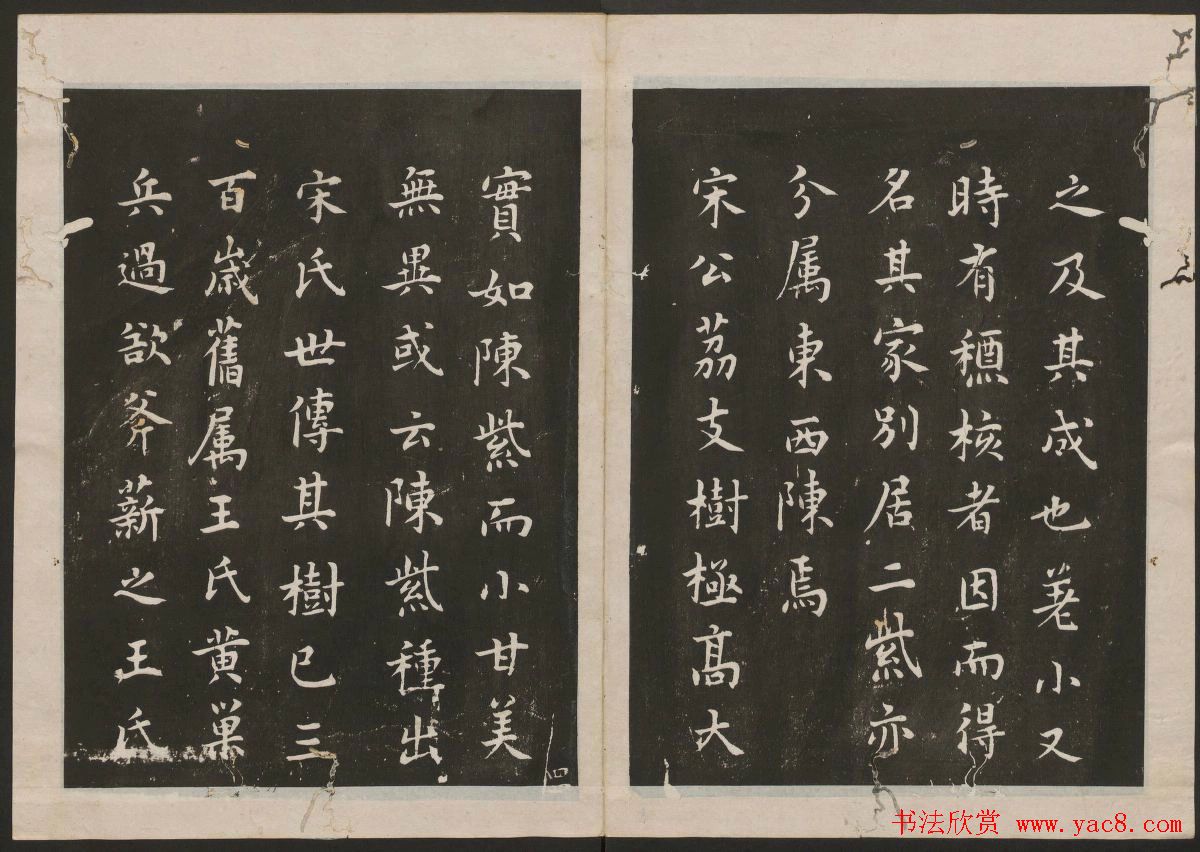 之及其成也差小又
時有穗核者因而得
名其家別居二紫亦
分属東西陳焉
宋公茘支樹極髙大
實如陳紫而小甘美
無異或云陳紫種出
宋氏世傳其樹已三
百歳舊属王氏黄巢
兵過欲斧薪之王氏
四
书法欣赏 www.yac8.com